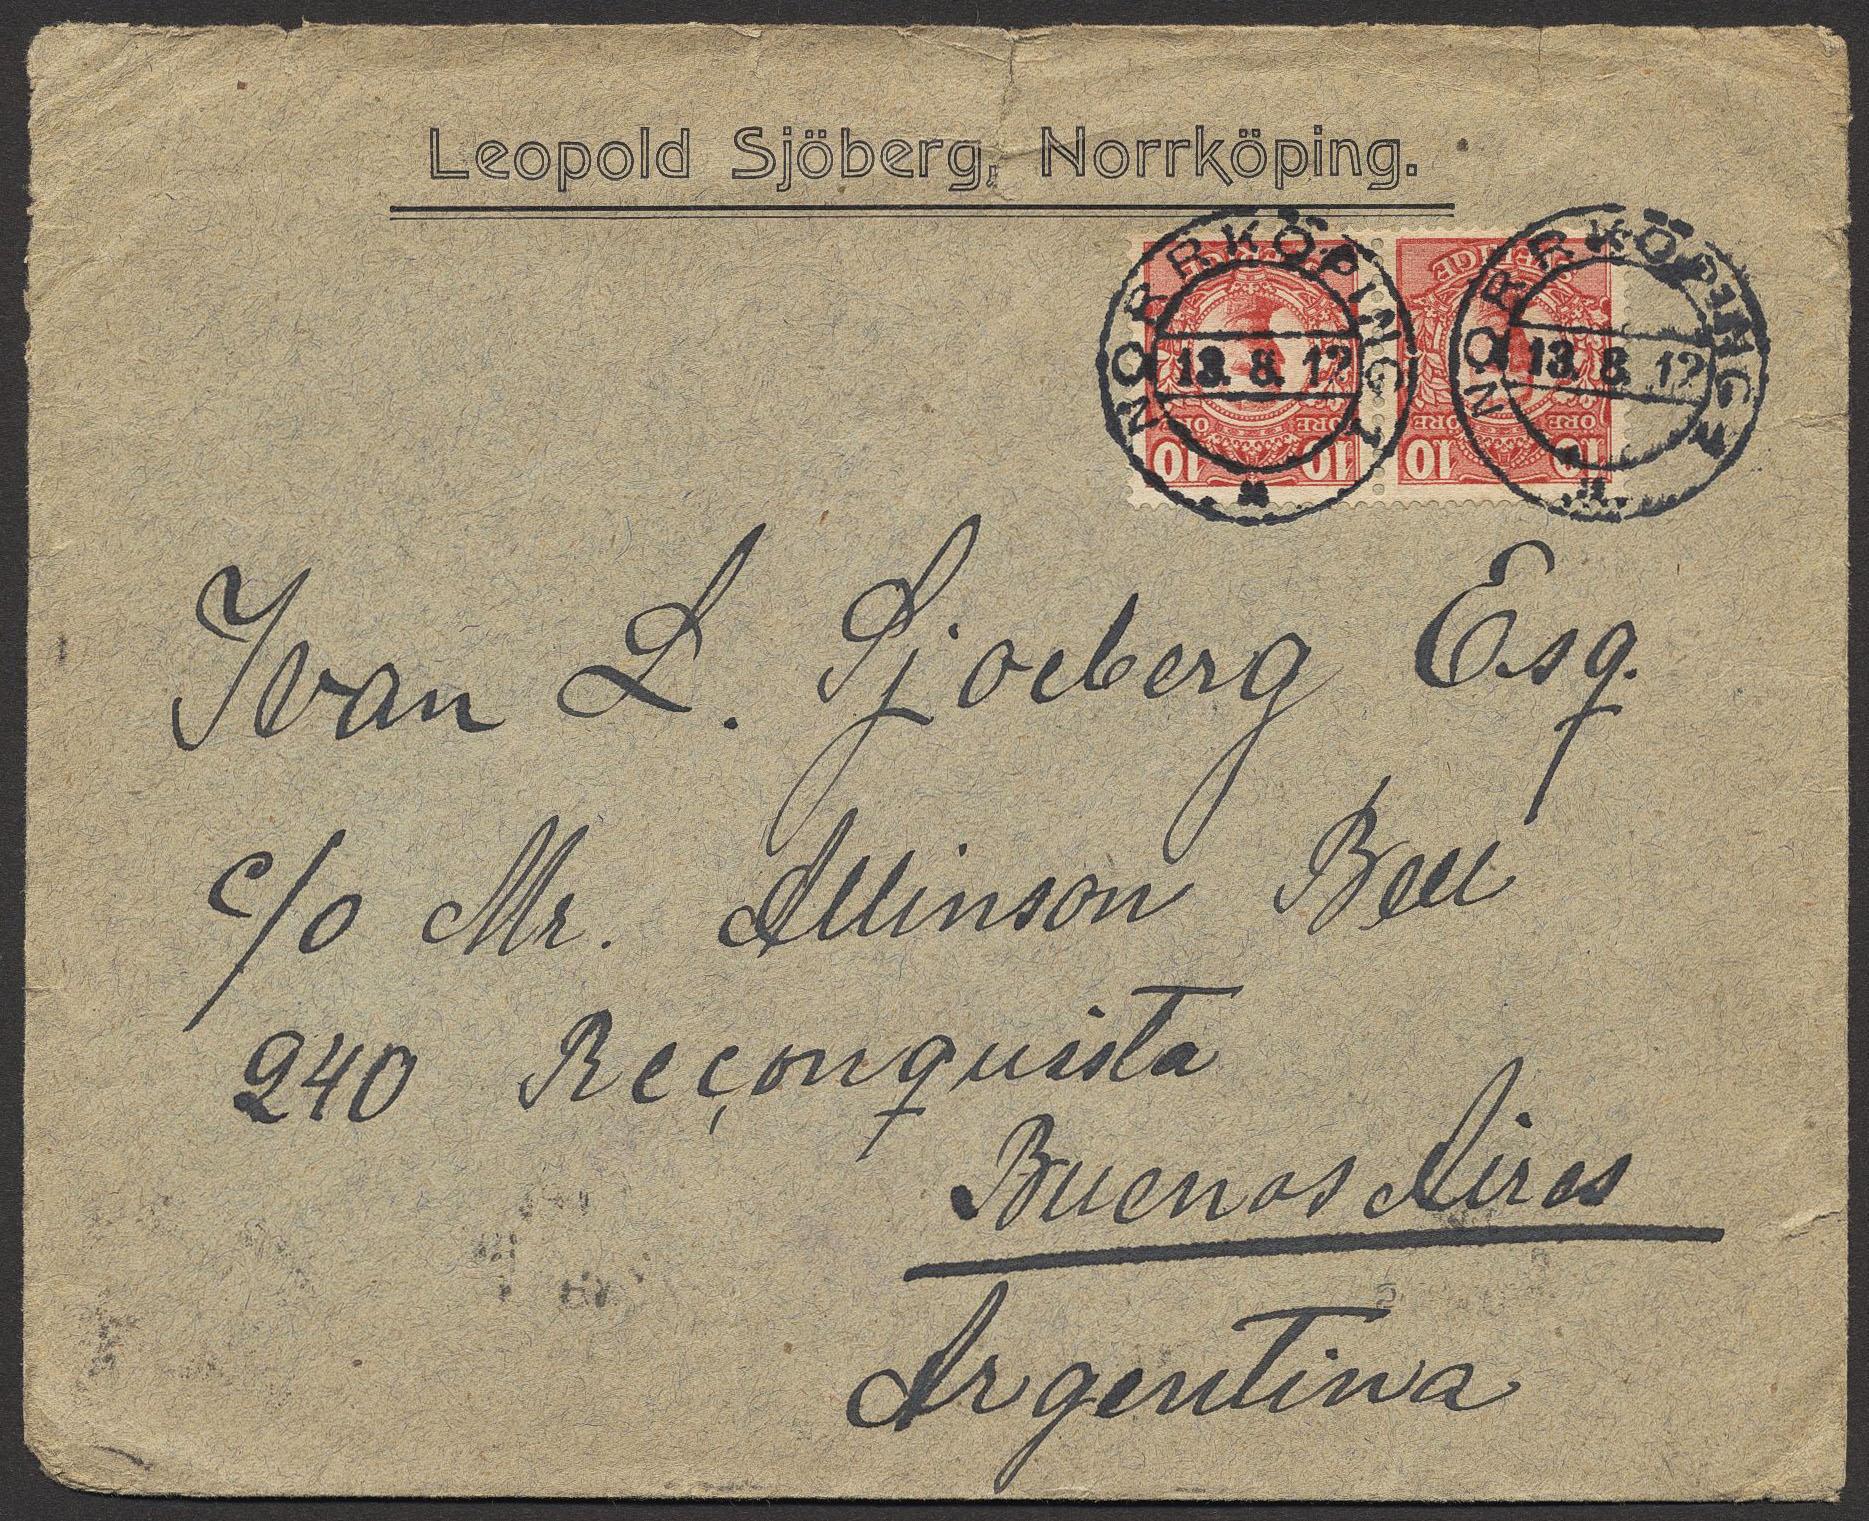 Leopold Sjöberg, Norrköping.
NORRKÖPING 1
13. 8. 12
NORRKÖPING 1
13. 8. 12
SVERIGE
10 ÖRE 10
SVERIGE
10 ÖRE 10
Ivan L. Sjoeberg Esq.
c/o Mr. Allinson Bell
240 Reçonquista
Buenos Aires
Argentina